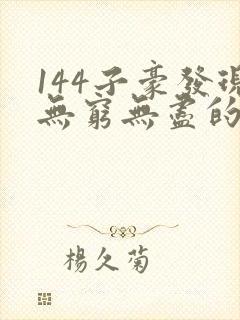 144子豪發現
無窮無盡的
楊久菊